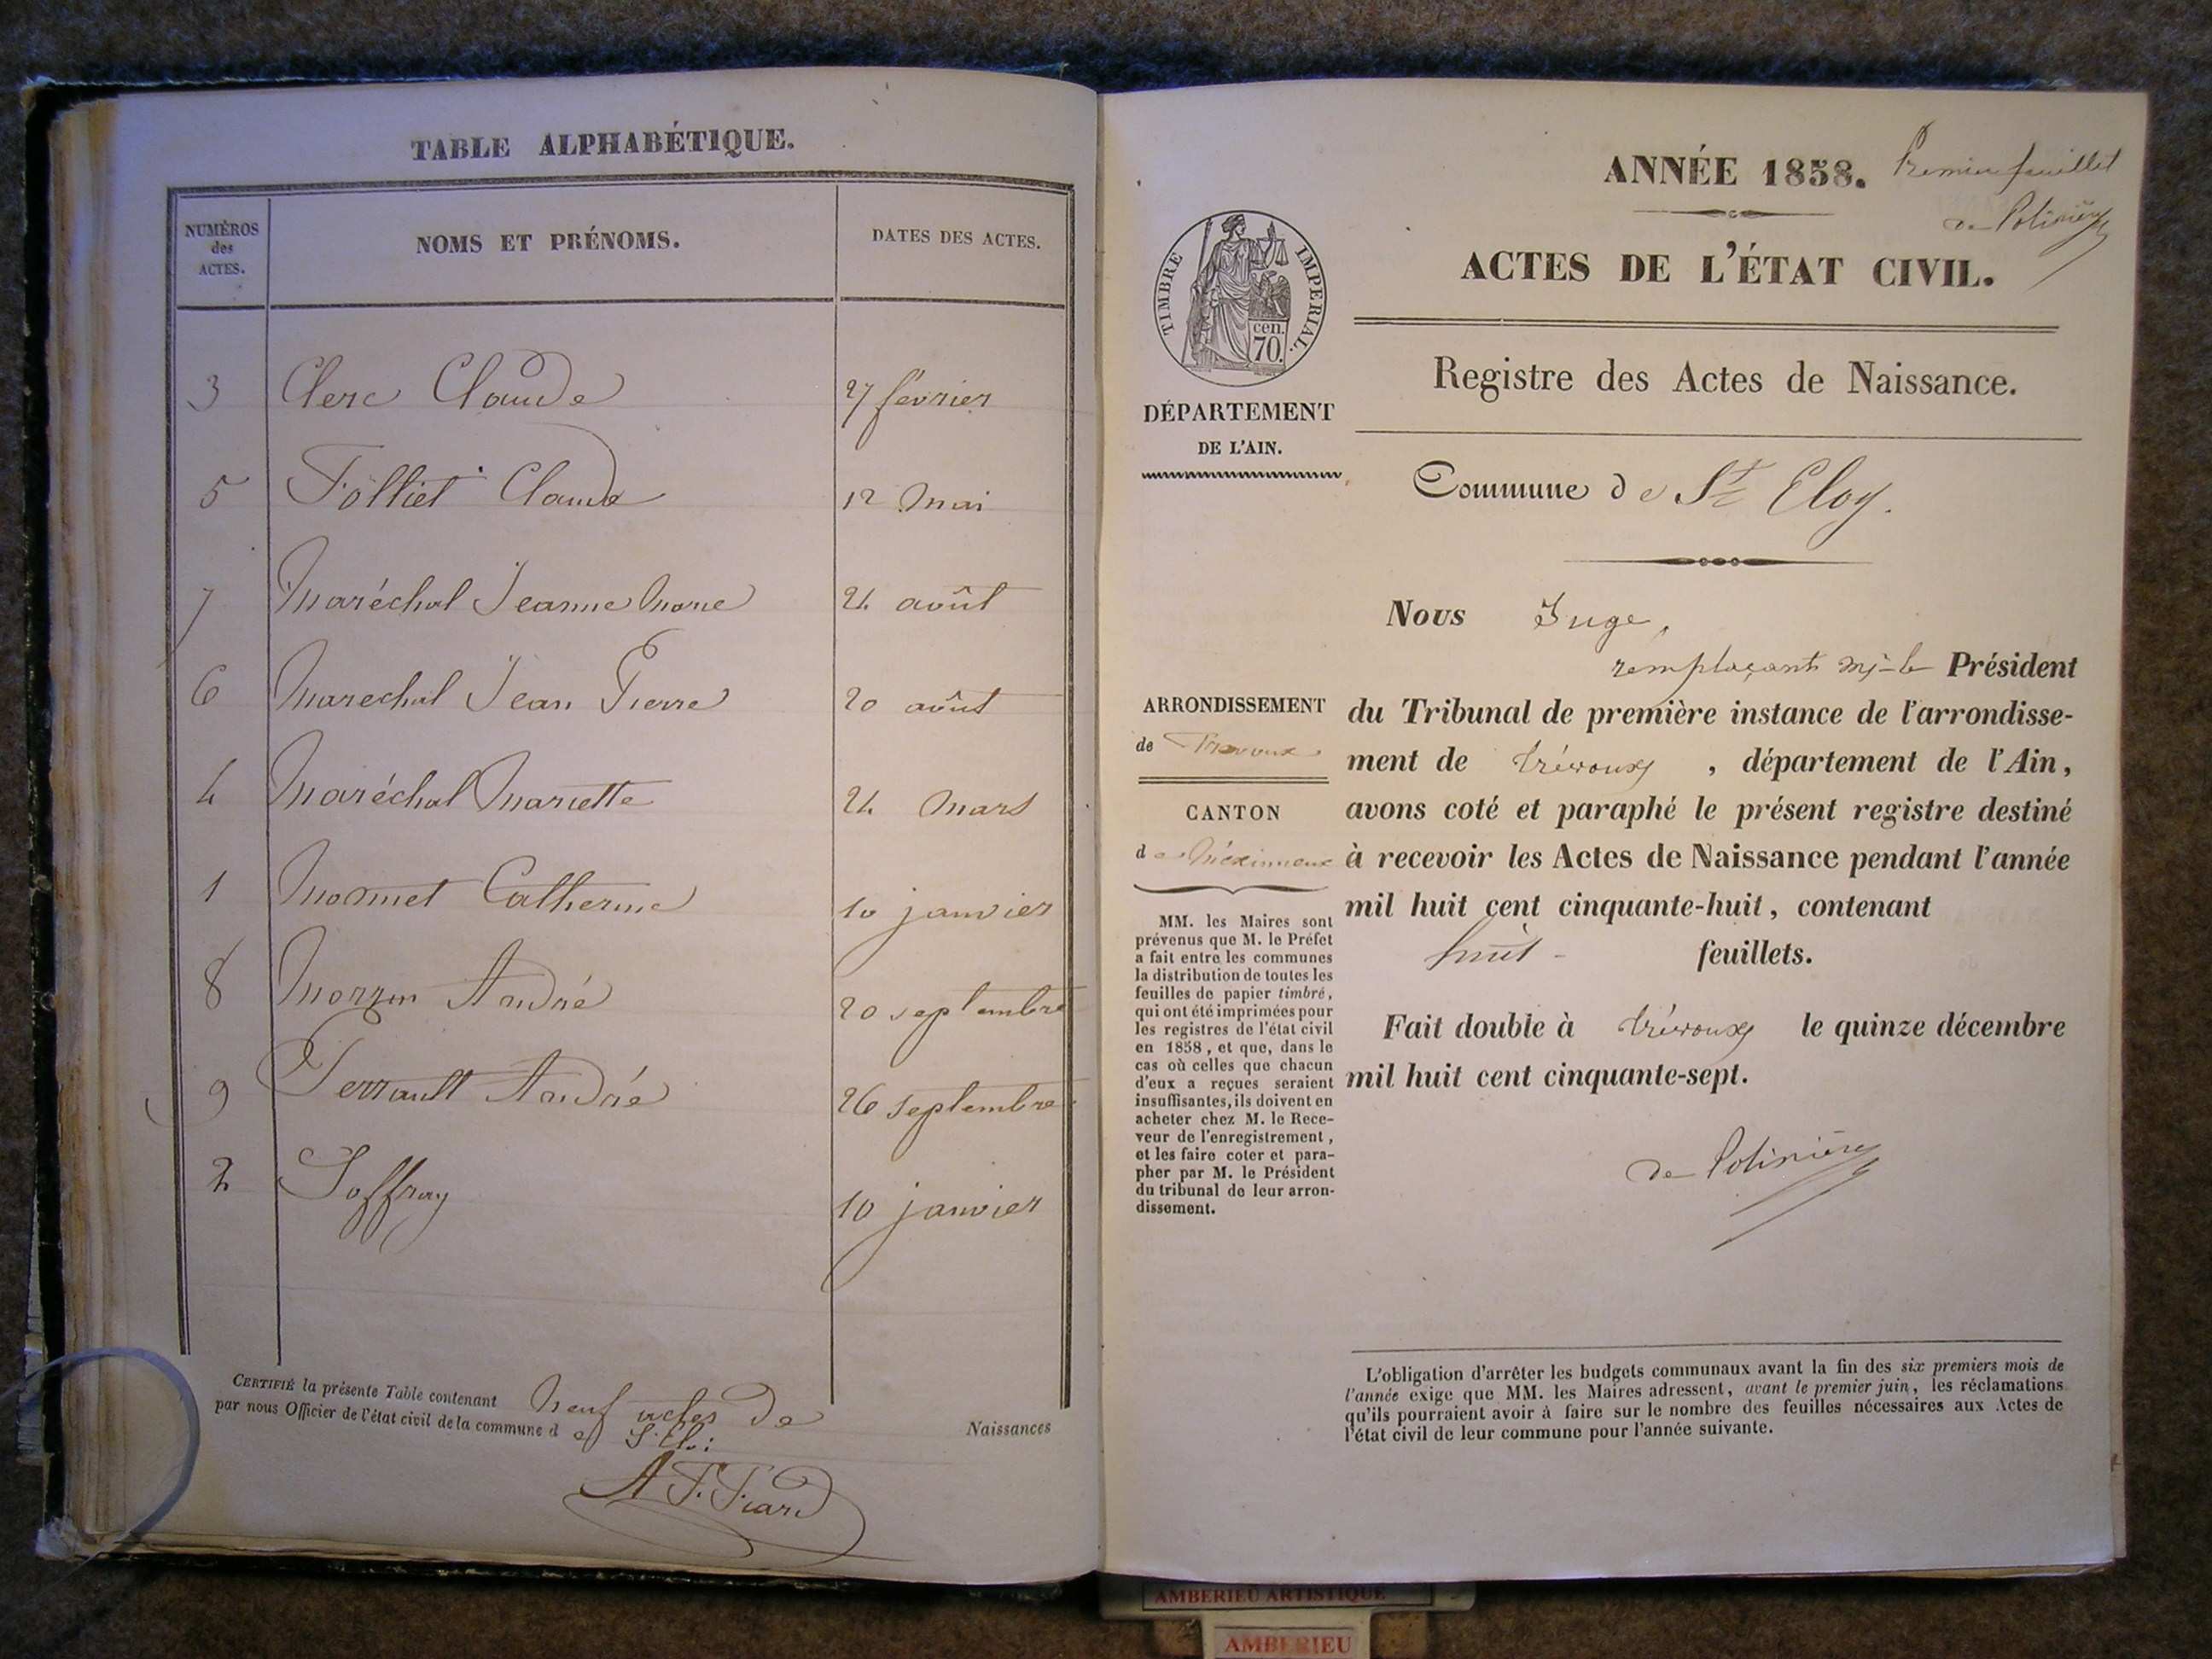 TABLE ALPHABÉTIQUE.
NUMÉROS des ACTES. NOMS ET PRÉNOMS. DATES DES ACTES.
3 Clerc Claude 27 février
5 Folliet Claude 12 mai
7 Maréchal Jeanne Marie 24 août
6 Marechal Jean Pierre 20 août
4 Maréchal Mariette 24 Mars
1 Monnet Catherine 10 janvier
8 André 20 septembre
9 Perrault André 26 septembre
2 Joffray 10 janvier
CERTIFIÉ la présente Table contenant Neuf actes de Naissances
par nous Officier de l'état civil de la commune de St Eloi
ANNÉE 1858. Premier feuillet
de Polinière
ACTES DE L'ÉTAT CIVIL.
TIMBRE IMPERIAL.
cen.
70.
DÉPARTEMENT
DE L'AIN.
Registre des Actes de Naissance.
Commune de St Eloy.
Nous Juge,
remplaçant Mr le Président
du Tribunal de première instance de l'arrondisse-
ment de trévoux, département de l'Ain,
avons coté et paraphé le présent registre destiné
à recevoir les Actes de Naissance pendant l'année
mil huit cent cinquante-huit, contenant
huit feuillets.
Fait double à trévoux le quinze décembre
mil huit cent cinquante-sept.
de Polinière
ARRONDISSEMENT
de Trevoux
CANTON
de Méximieux
MM. les Maires sont
prévenus que M. le Préfet
a fait entre les communes
la distribution de toutes les
feuilles de papier timbré,
qui ont été imprimées pour
les registres de l'état civil
en 1858, et que, dans le
cas où celles que chacun
d'eux a reçues seraient
insuffisantes, ils doivent en
acheter chez M. le Rece-
veur de l'enregistrement,
et les faire coter et para-
pher par M. le Président
du tribunal de leur arron-
dissement.
L'obligation d'arrêter les budgets communaux avant la fin des six premiers mois de
l'année exige que MM. les Maires adressent, avant le premier juin, les réclamations
qu'ils pourraient avoir à faire sur le nombre des feuilles nécessaires aux Actes de
l'état civil de leur commune pour l'année suivante.
AMBERIEU ARTISTIQUE
AMBERIEU